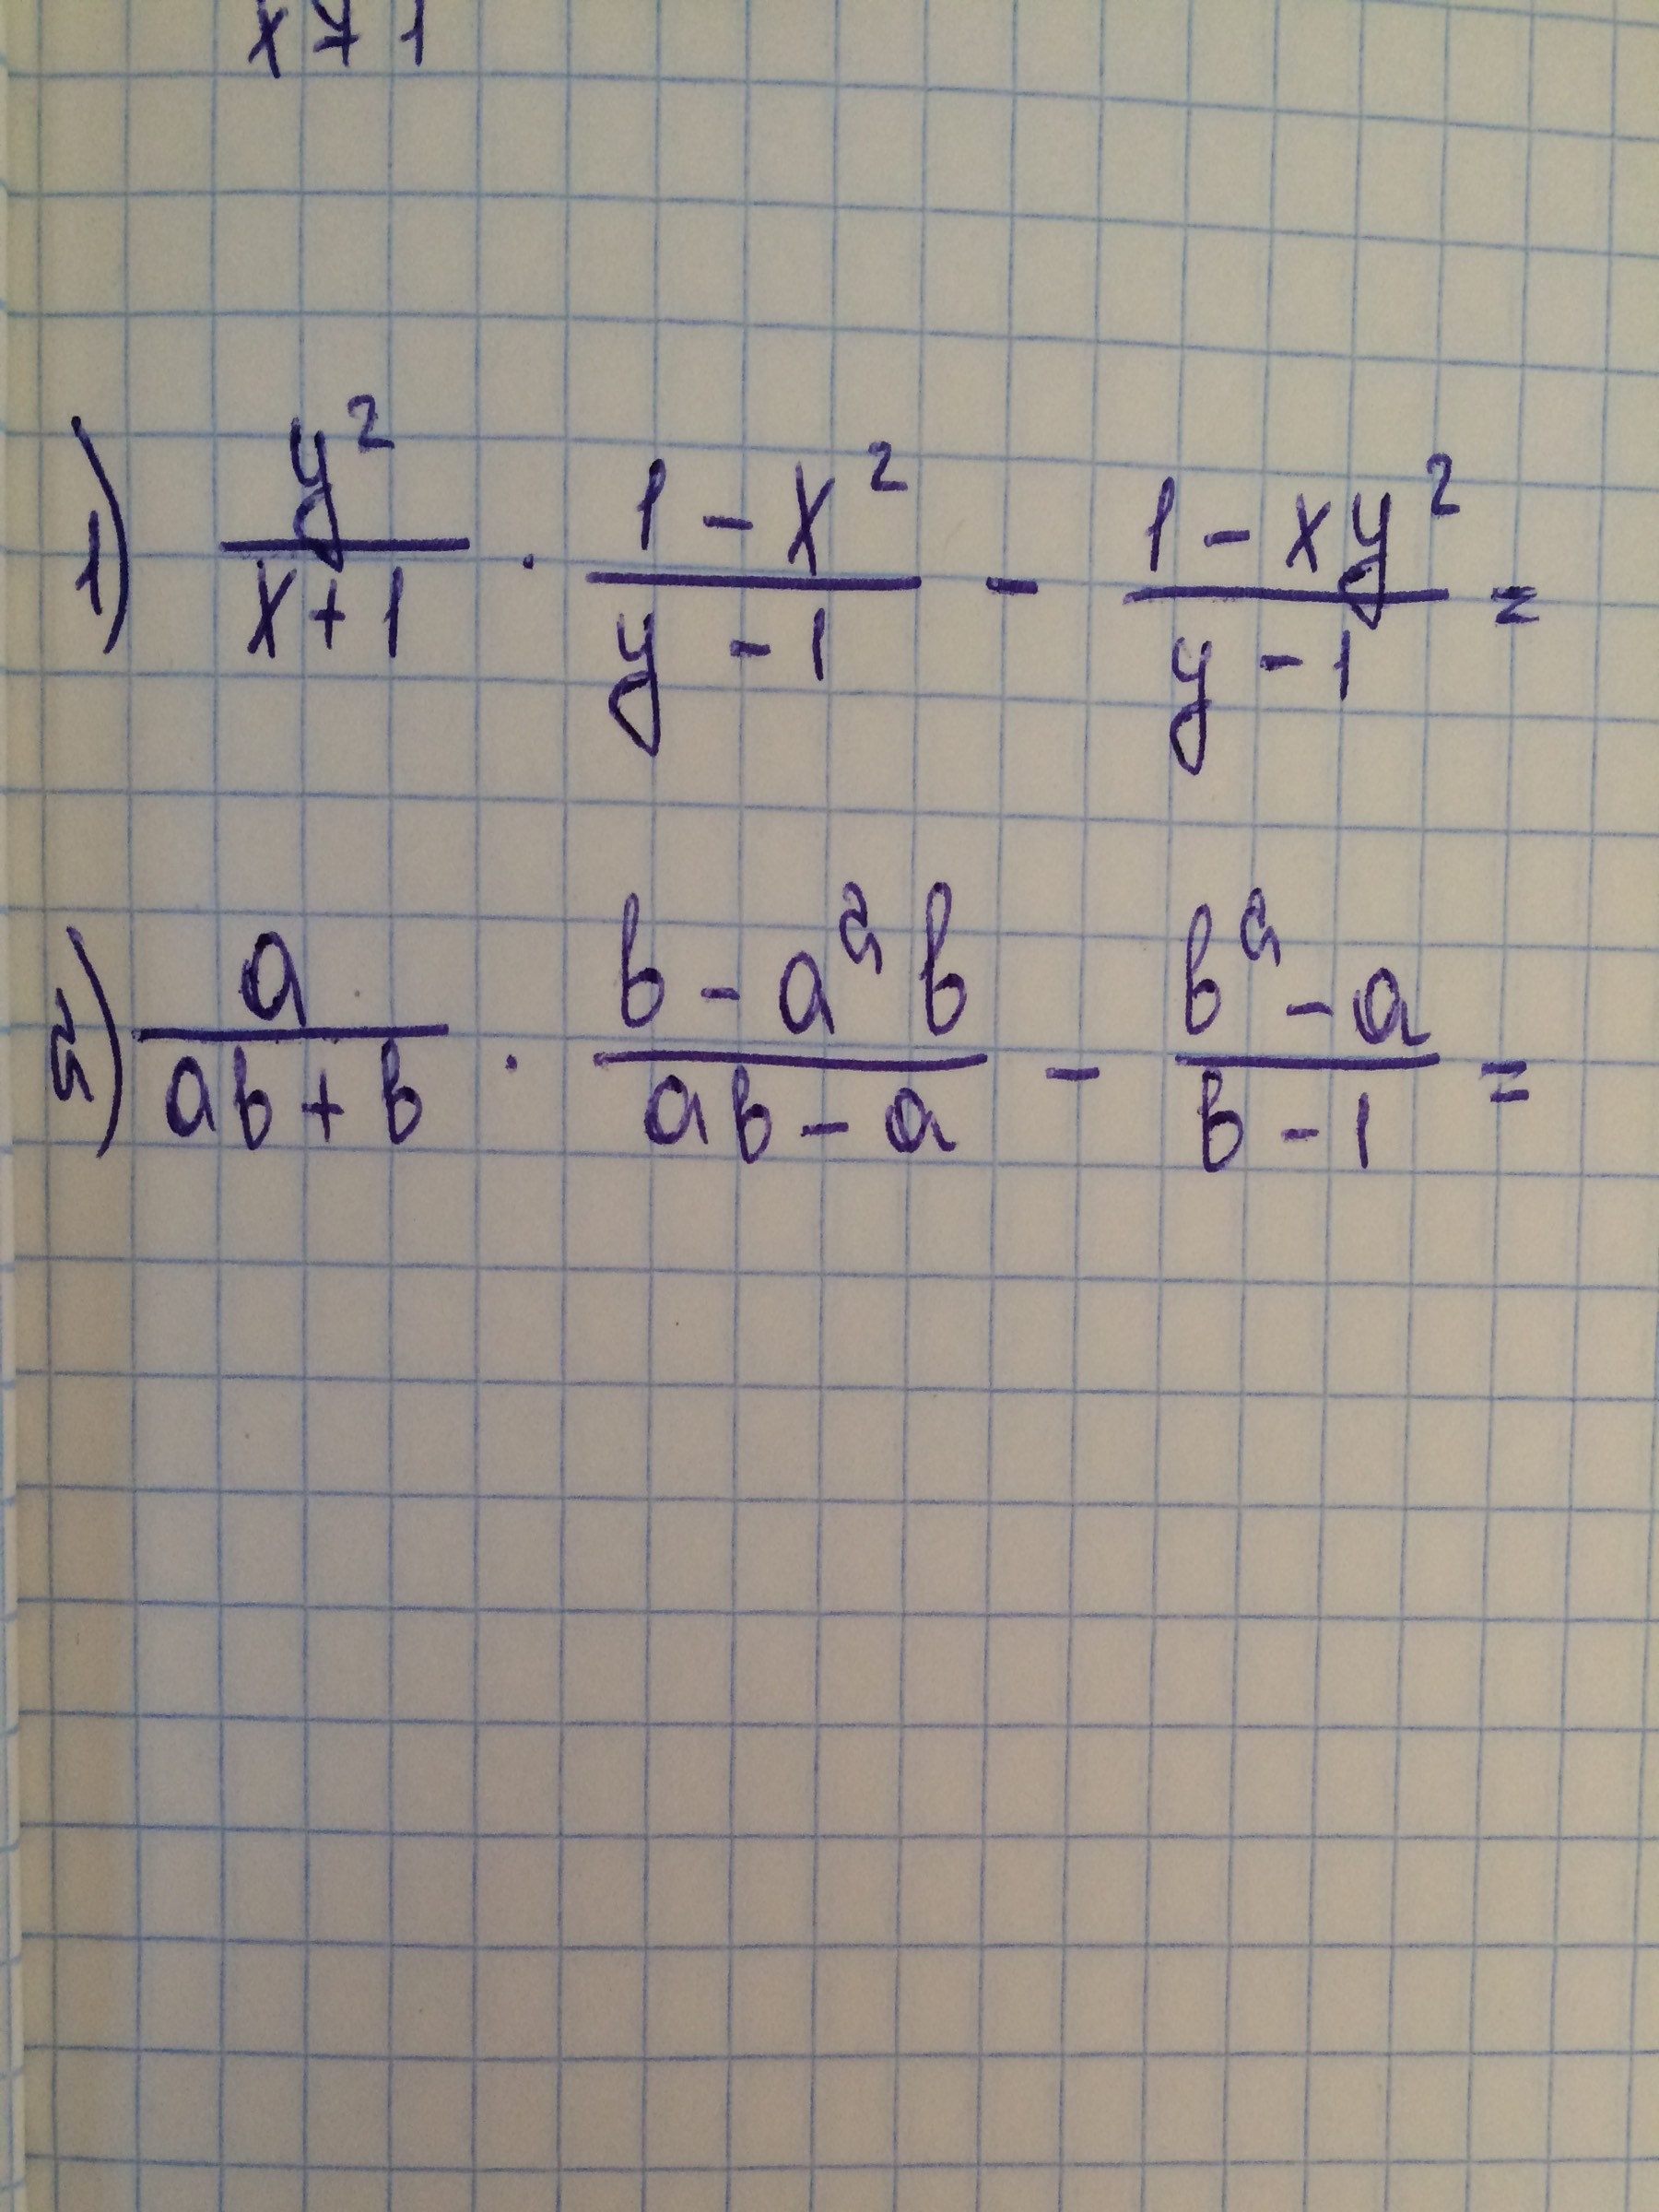 x+1
1) y²/(x+1) · (1-x²)/(y-1) - (1-xy²)/(y-1) =
2) a/(ab+b) · (b-a²b)/(ab-a) - (b²-a)/(b-1) =